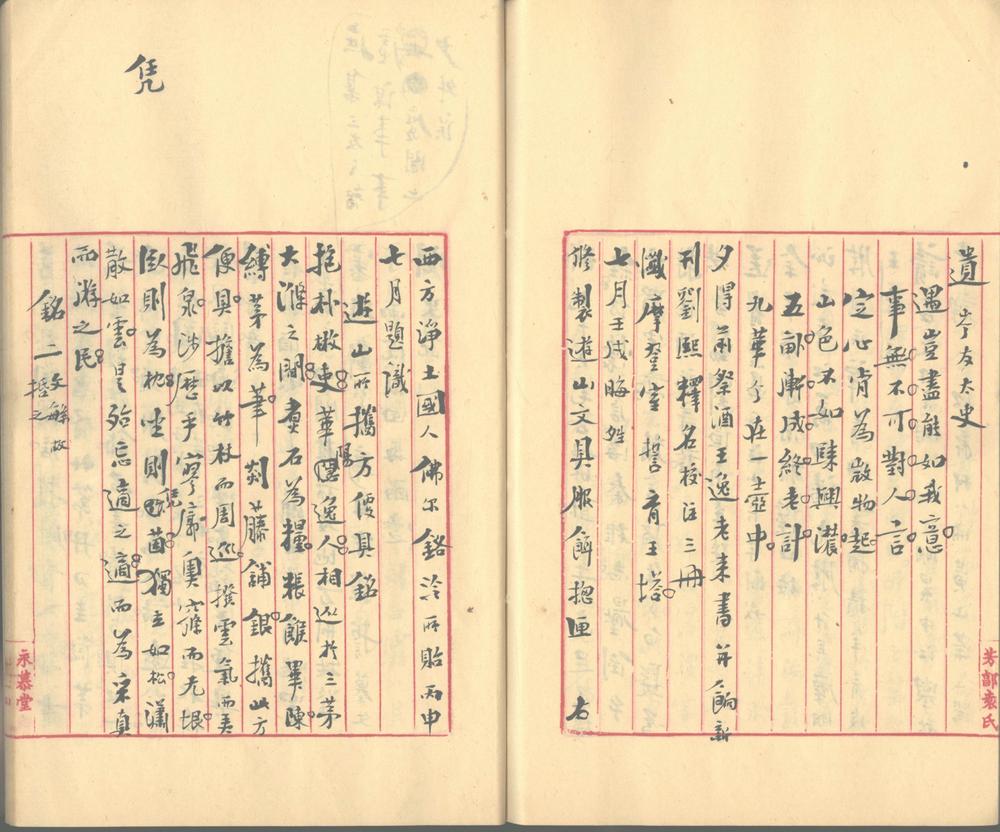 遺岑友太史
遇豈盡能如我意
事無不可對人言
定心肯為微物起
山色不如肆興濃
五畝漸成終老計
九華今在一壺中
夕得前祭酒王逸老来書并餉新
刊劉熙釋名校注三冊
懺摩登室誓育王塔
七月壬戌晦姓
修製遊山文具服餙揔匣 者
芳郭袁氏
西方淨土國人佛尔銘泠所貽丙申
七月題識
遊山所攜方便具銘
抱朴橄叟華陽隱逸人相巡於三茅
大滌之間煑石為糧粻餱畢陳
縛茅為筆剡藤鋪銀攜此方
便具擔以竹杖而周巡撥雲氣而弄
飛泉涉歷乎寥廓奧窱而无垠
臥則為枕坐則凭茵獨立如松瀟
散如雲是殆忘適之適而為采真
而游之民
銘二文餘故
揔之
永慕堂
凭